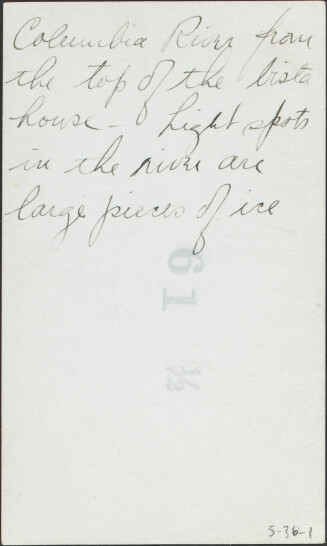 Columbia River from
the top of the vista
house - Light spots
in the river are
large pieces of ice
61 ½
5-36-1